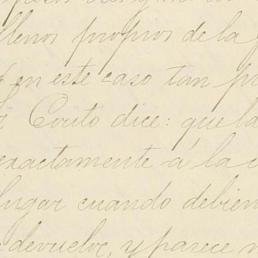 llenos propios de la
en este caso tan
Couto dice: que la
exactamente á la
lugar cuando debien
devuelve, y parece